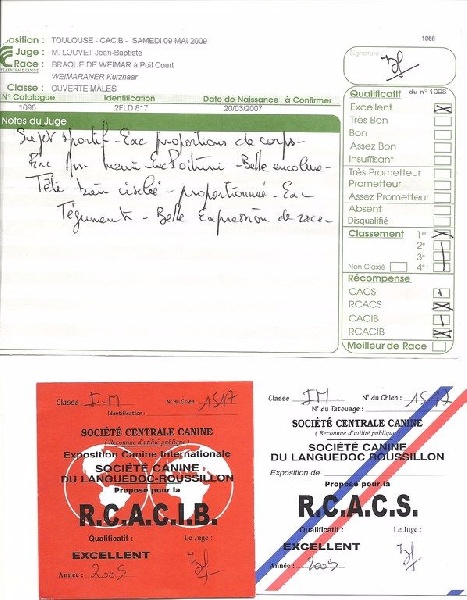 osition : TOULOUSE - CACIB - SAMEDI 09 MAI 2009
Juge : M. LOUVET Jean-Baptiste
Race : BRAQUE DE WEIMAR à Poil Court
WEIMARANER Kurzhaar
Classe : OUVERTE MALES
N° Catalogue Identification Date de Naissance à Confirmer
1096 2FLD 617 20/03/2007
Notes du Juge
Sujet sportif - Exc proportions de corps -
Exc - Exc Poitrine - Belle encolure -
Tête bien ciselée - proportionnée - Exc
Téguments - Belle Expression de race -
1096
Signature
Qualificatif du n° 1096
Excellent X
Très Bon
Bon
Assez Bon
Insuffisant
Très Prometteur
Prometteur
Assez Prometteur
Absent
Disqualifié
Classement 1er X
2e
3e
Non Classé 4e
Récompense
CACS
RCACS X
CACIB
RCACIB X
Meilleur de Race
Classe N° du Chien : 1517
Identification :
SOCIÉTÉ CENTRALE CANINE
(Reconnue d'utilité publique)
Exposition Canine Internationale
SOCIÉTÉ CANINE
DU LANGUEDOC-ROUSSILLON
Proposé pour la
R.C.A.C.I.B.
Qualificatif : Le Juge :
EXCELLENT
Année : 2009
Classe : IM N° du Chien : 1517
N° du Tatouage :
SOCIÉTÉ CENTRALE CANINE
(Reconnue d'utilité publique)
SOCIÉTÉ CANINE
DU LANGUEDOC ROUSSILLON
Exposition de
Proposé pour la
R.C.A.C.S.
Qualificatif : Le Juge :
EXCELLENT
Année : 2009